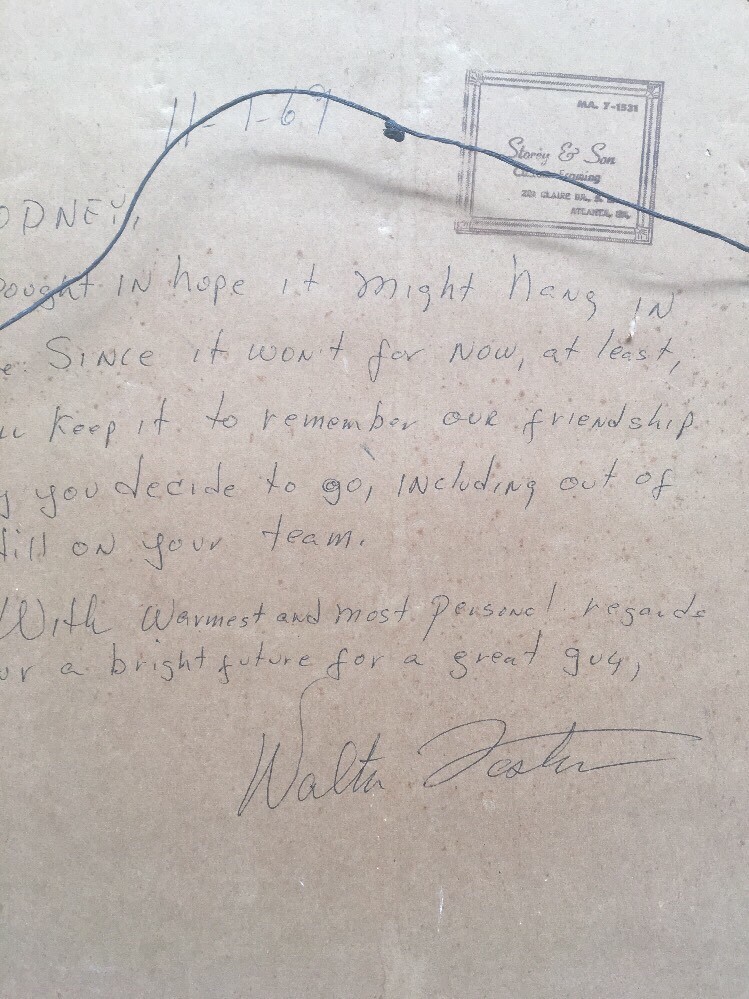 11-1-69
MA. 7-1531
Storey & Son
Custom Framing
ATLANTA, GA.
ODNEY,
ought IN hope it might hang IN
e. SINCE it won't for NOW, at least,
u keep it to remember OUR friendship
y you decide to go, INcluding out of
till ON your team.
With warmest and most personal regards
or a bright future for a great guy,
Walter